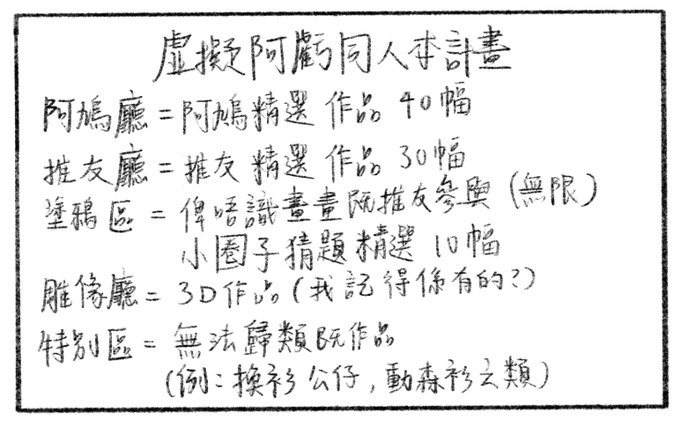 虛擬阿虧同人本計畫
阿鳩廳=阿鳩精選作品 40幅
推友廳=推友精選作品 30幅
塗鴉區=俾唔識畫畫既推友參與(無限)
小圈子猜題精選 10幅
雕像廳=3D作品(我記得係有的?)
特別區=無法歸類既作品
(例:換衫公仔,動森衫之類)